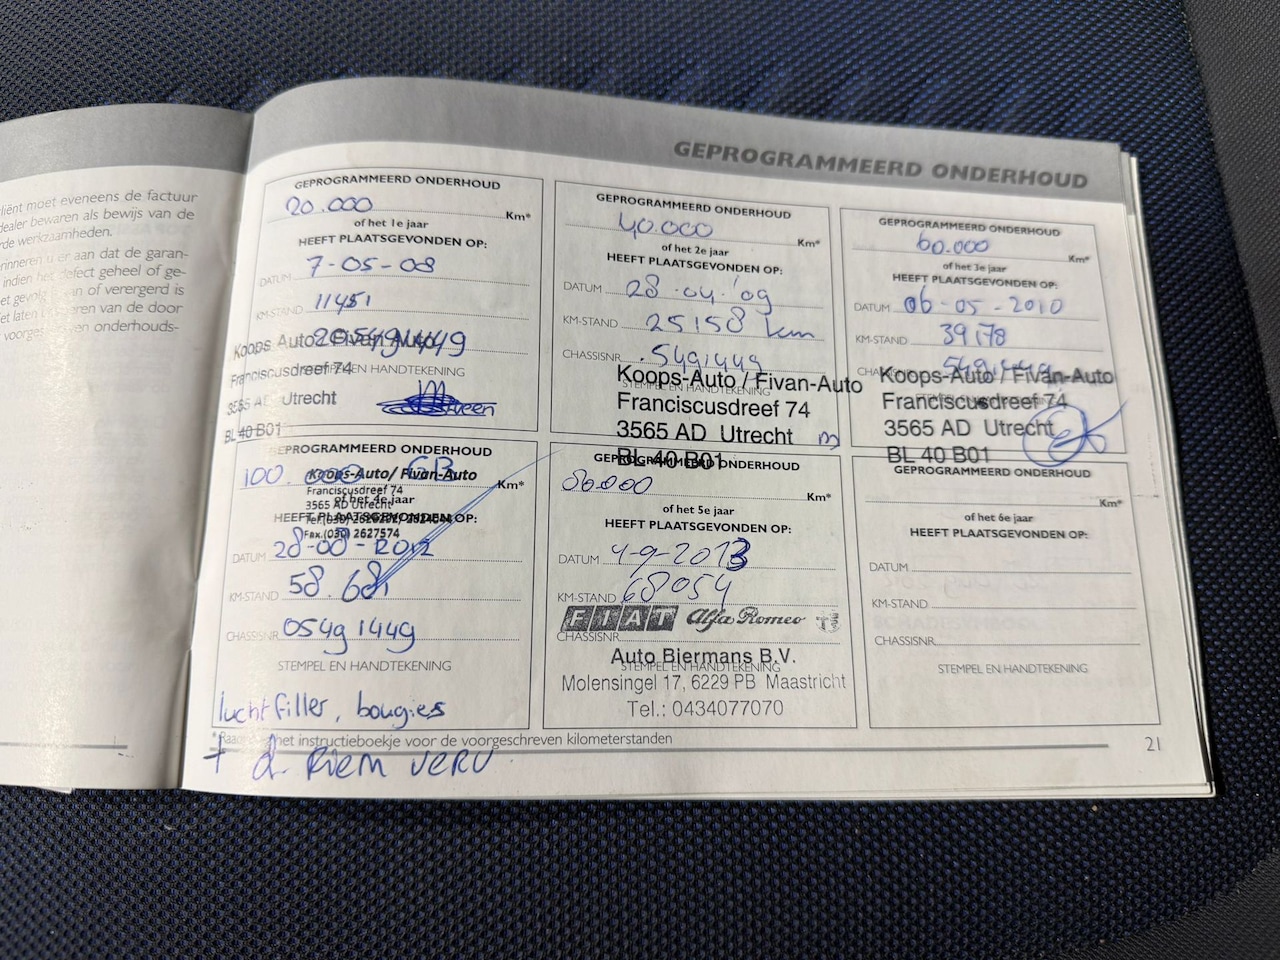 liënt moet eveneens de factuur
dealer bewaren als bewijs van de
rde werkzaamheden.
erinneren u er aan dat de garan-
indien het defect geheel of ge-
et gevolg van of verergerd is
et laten van de door
voorgeschreven onderhouds-
GEPROGRAMMEERD ONDERHOUD
GEPROGRAMMEERD ONDERHOUD
20.000 Km*
of het 1e jaar
HEEFT PLAATSGEVONDEN OP:
DATUM 7-05-08
KM-STAND 11451
205491449
Koops Auto / Fivan Auto
STEMPEL EN HANDTEKENING
Franciscusdreef 74
3565 AD Utrecht
BL 40 B01
GEPROGRAMMEERD ONDERHOUD
40.000 Km*
of het 2e jaar
HEEFT PLAATSGEVONDEN OP:
DATUM 28-04-'09
KM-STAND 25158 km
CHASSISNR. 5491449
STEMPEL EN HANDTEKENING
Koops-Auto / Fivan-Auto
Franciscusdreef 74
3565 AD Utrecht
BL 40 B01
GEPROGRAMMEERD ONDERHOUD
60.000 Km*
of het 3e jaar
HEEFT PLAATSGEVONDEN OP:
DATUM 06-05-2010
KM-STAND 39178
5491449
Koops-Auto / Fivan-Auto
Franciscusdreef 74
3565 AD Utrecht
BL 40 B01
GEPROGRAMMEERD ONDERHOUD
100. Km*
Koops-Auto/ Fivan-Auto
Franciscusdreef 74
of het 4e jaar
3565 AD Utrecht
HEEFT PLAATSGEVONDEN OP:
Fax.(030) 2627574
DATUM 28-08-2012
KM-STAND 58.681
CHASSISNR 05491449
STEMPEL EN HANDTEKENING
luchtfilter, bougies
+ d. Riem verv
GEPROGRAMMEERD ONDERHOUD
80.000 Km*
of het 5e jaar
HEEFT PLAATSGEVONDEN OP:
DATUM 4-9-2013
KM-STAND 68054
FIAT Alfa Romeo
CHASSISNR.
Auto Biermans B.V.
STEMPEL EN HANDTEKENING
Molensingel 17, 6229 PB Maastricht
Tel.: 0434077070
GEPROGRAMMEERD ONDERHOUD
Km*
of het 6e jaar
HEEFT PLAATSGEVONDEN OP:
DATUM
KM-STAND
CHASSISNR.
STEMPEL EN HANDTEKENING
* het instructieboekje voor de voorgeschreven kilometerstanden
21